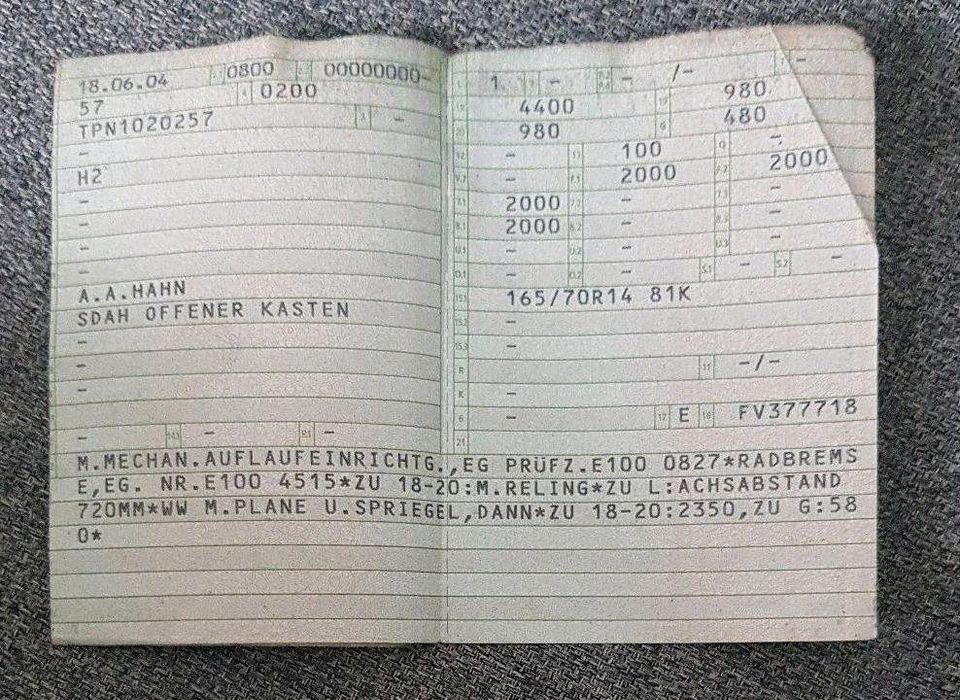 18.06.04 0800 00000000-
57 0200
TPN1020257 -
-
H2
-
-
-
-
A.A.HAHN
SDAH OFFENER KASTEN
-
-
-
- - -
1 - - /- -
4400 980
980 480
- 100 -
- 2000 2000
2000 - -
2000 - -
- - -
- - - -
165/70R14 81K
-
-
-/-
-
- E FV377718
M.MECHAN.AUFLAUFEINRICHTG.,EG PRÜFZ.E100 0827*RADBREMS
E,EG. NR.E100 4515*ZU 18-20:M.RELING*ZU L:ACHSABSTAND
720MM*WW M.PLANE U.SPRIEGEL,DANN*ZU 18-20:2350,ZU G:58
0*